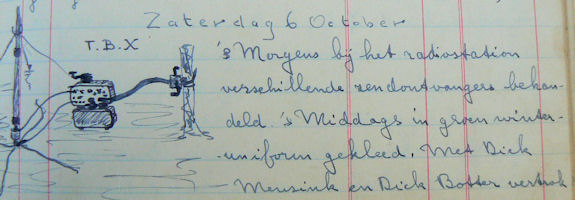 Zaterdag 6 October
T.B.X
's Morgens bij het radiostation
verschillende zendontvangers behan-
deld. 's Middags in groen winter-
uniform gekleed. Met Dick
Mensink en Dick Botter vertrok